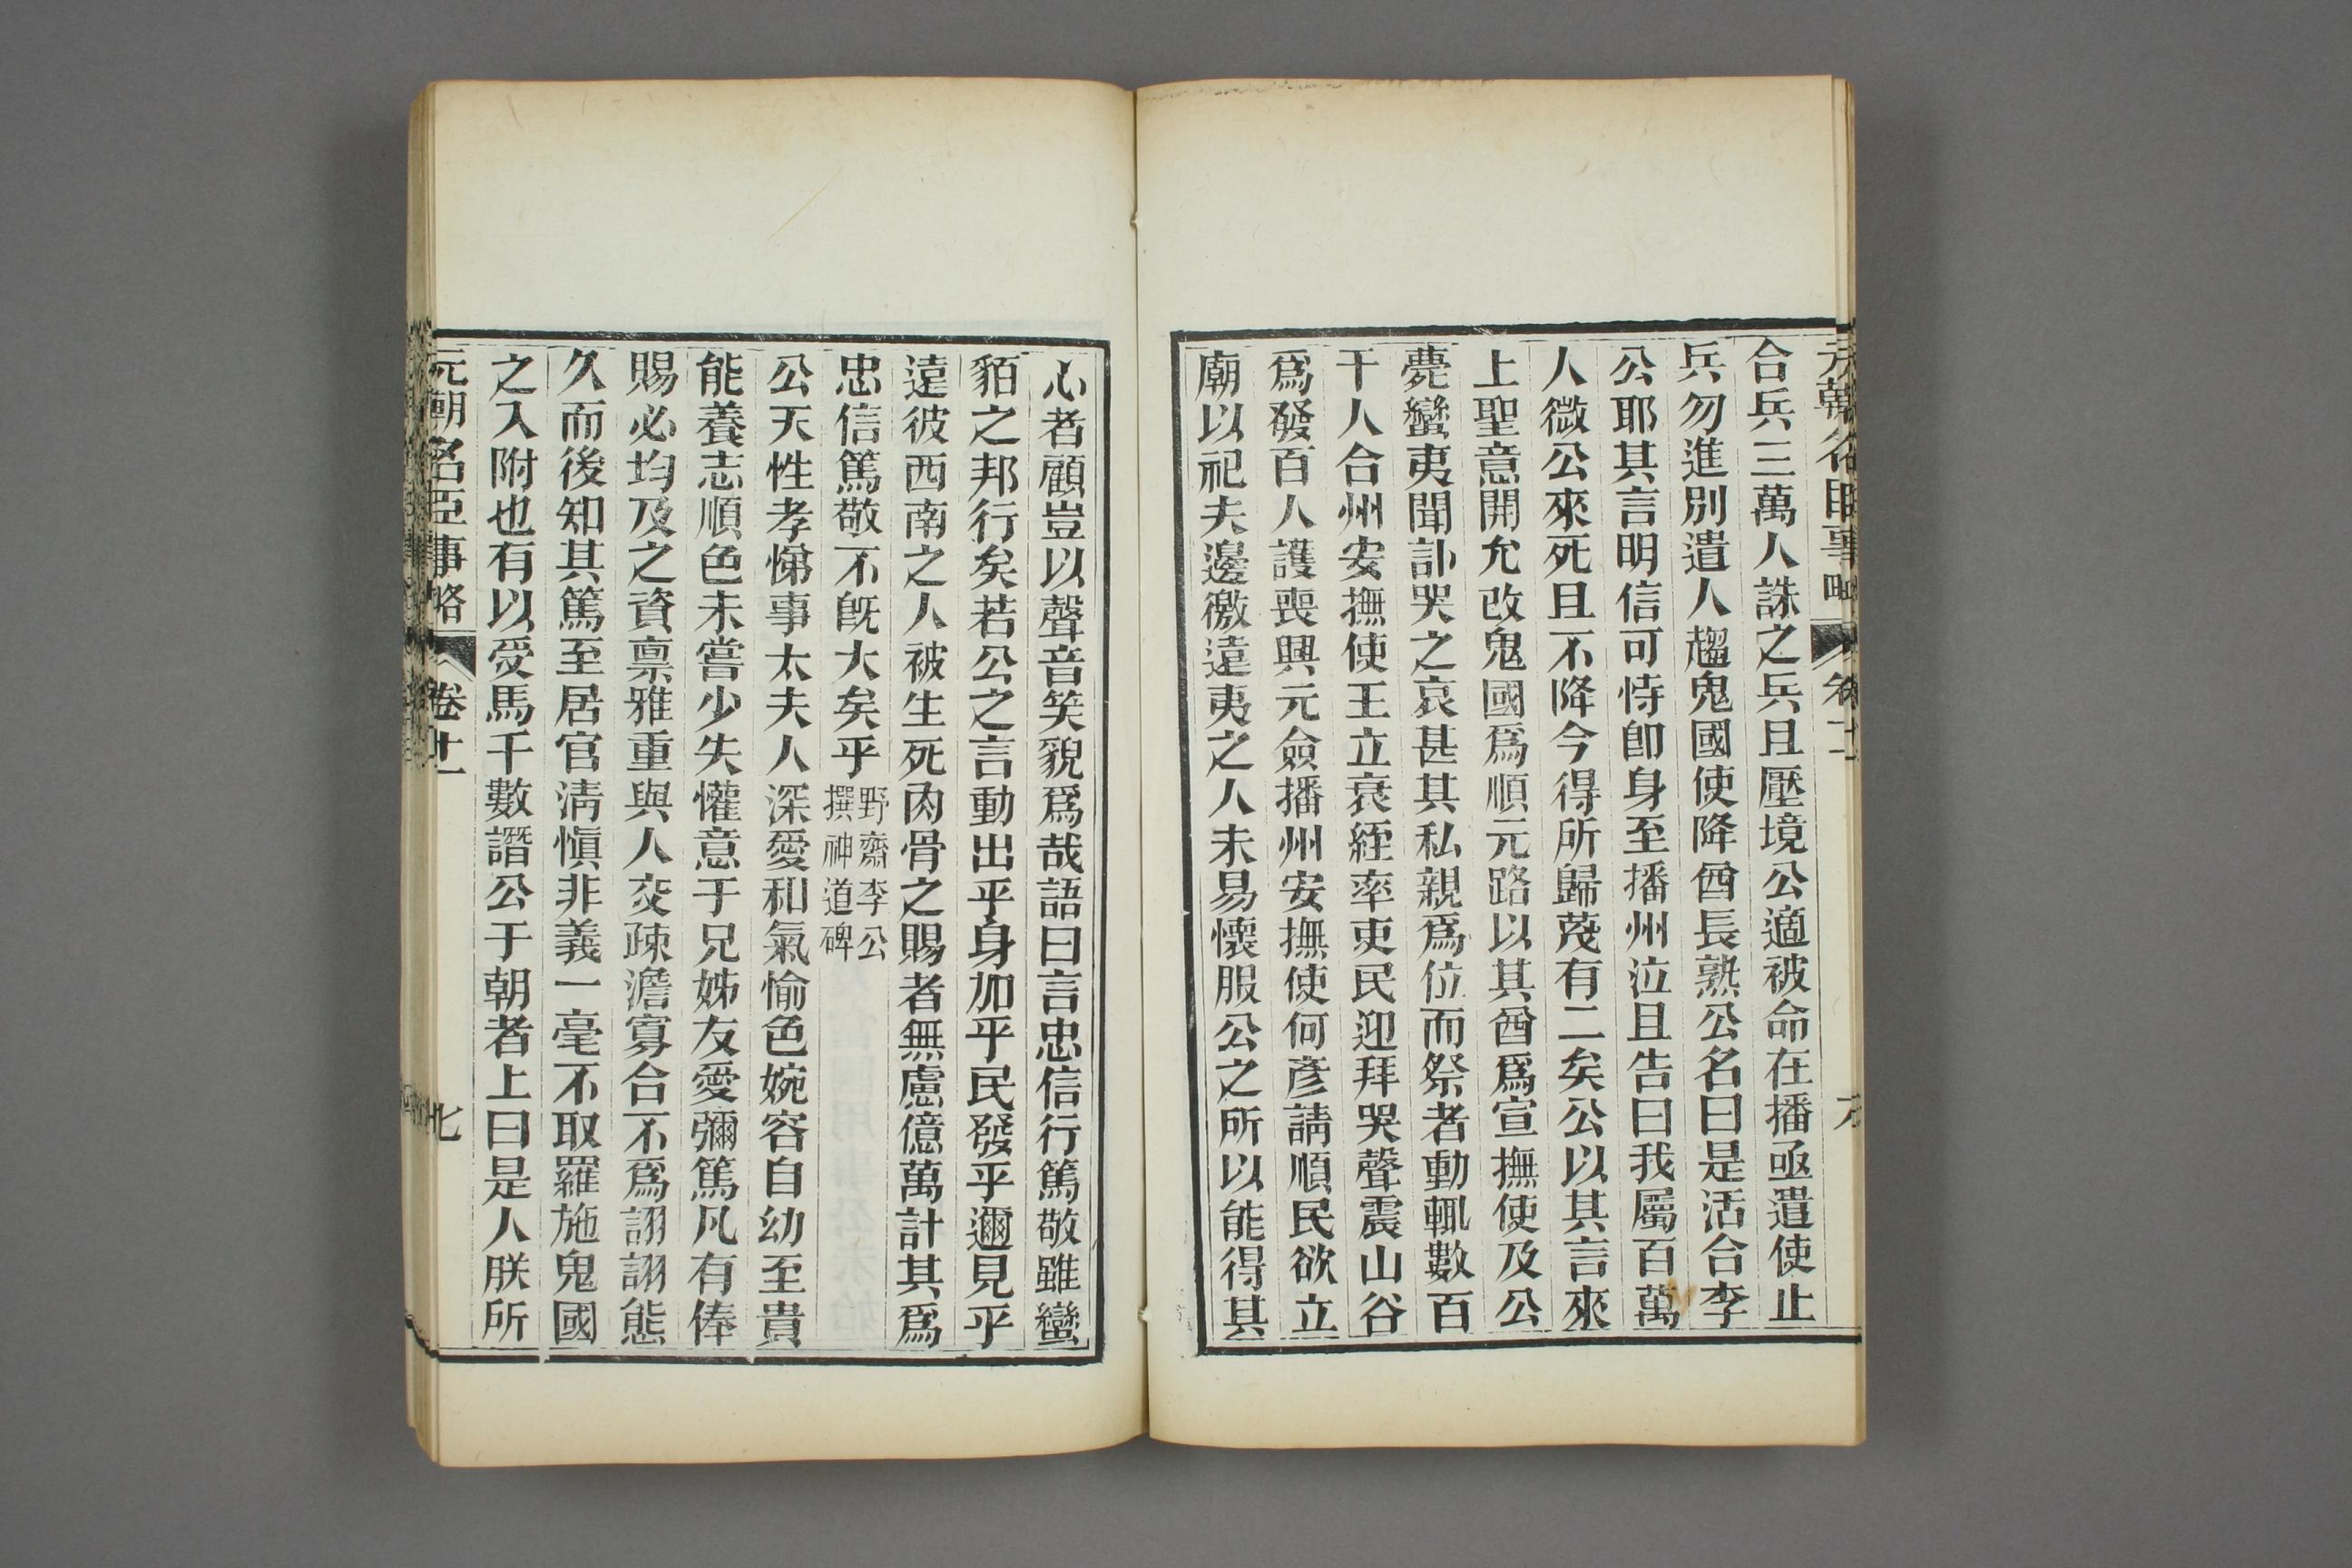 元朝名臣事略 卷十一 六
合兵三萬人誅之兵且壓境公適被命在播亟遣使止
兵勿進別遣人趨鬼國使降酋長熟公名曰是活合李
公耶其言明信可恃卽身至播州泣且告曰我屬百萬
人微公來死且不降今得所歸蔑有二矣公以其言來
上聖意開允改鬼國爲順元路以其酋爲宣撫使及公
薨蠻夷聞訃哭之哀甚其私親爲位而祭者動輒數百
千人合州安撫使王立衰絰率吏民迎拜哭聲震山谷
爲發百人護喪興元僉播州安撫使何彥請順民欲立
廟以祀夫邊徼遠夷之人未易懷服公之所以能得其
心者顧豈以聲音笑貌爲哉語曰言忠信行篤敬雖蠻
貊之邦行矣若公之言動出乎身加乎民發乎邇見乎
遠彼西南之人被生死肉骨之賜者無慮億萬計其爲
忠信篤敬不旣大矣乎
野齋李公
撰神道碑
公天性孝悌事太夫人深愛和氣愉色婉容自幼至貴
能養志順色未嘗少失懽意于兄姊友愛彌篤凡有俸
賜必均及之資禀雅重與人交疎澹寡合不爲詡詡態
久而後知其篤至居官淸愼非義一毫不取羅施鬼國
之入附也有以受馬千數譖公于朝者上曰是人朕所
元朝名臣事略 卷十一 七